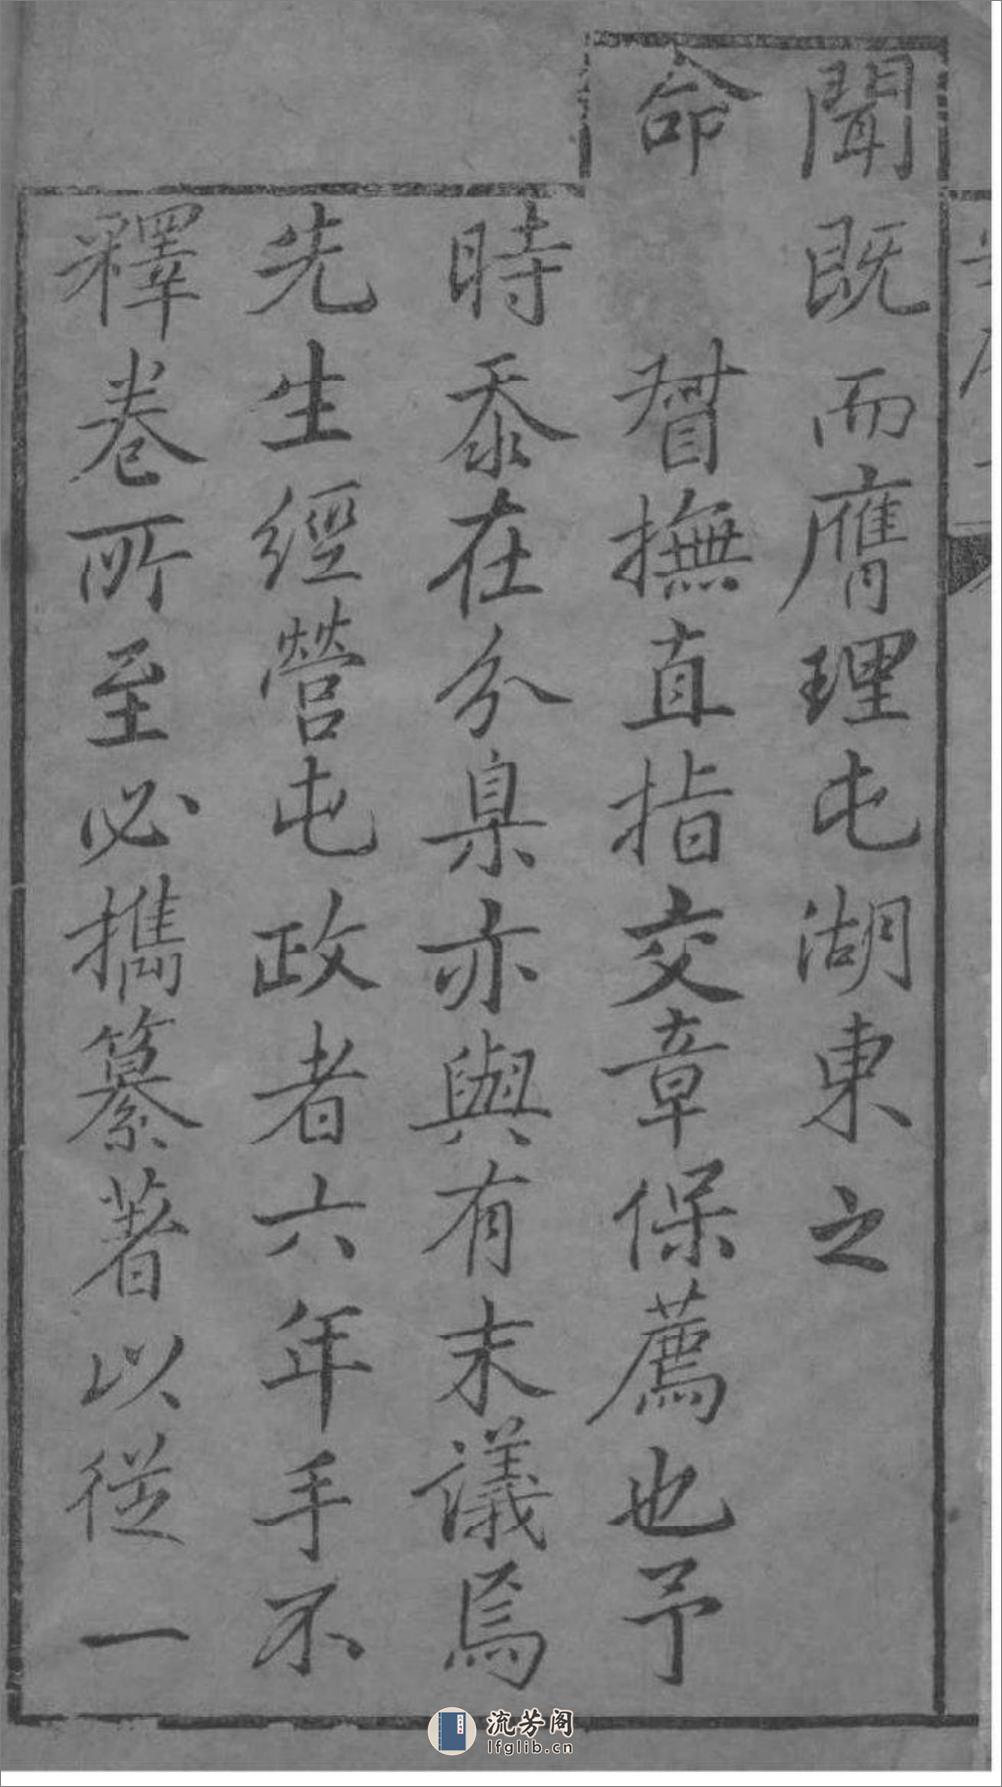 聞既而膺理屯湖東之
命
督撫直指交章保薦也予
時忝在分臬亦與有末議焉
先生經營屯政者六年手不
釋卷所至必攜纂著以從一
流芳阁
lfglib.cn